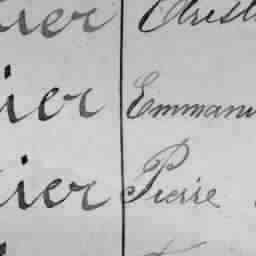 ier Arist
ier Emmanu
ier Pierre